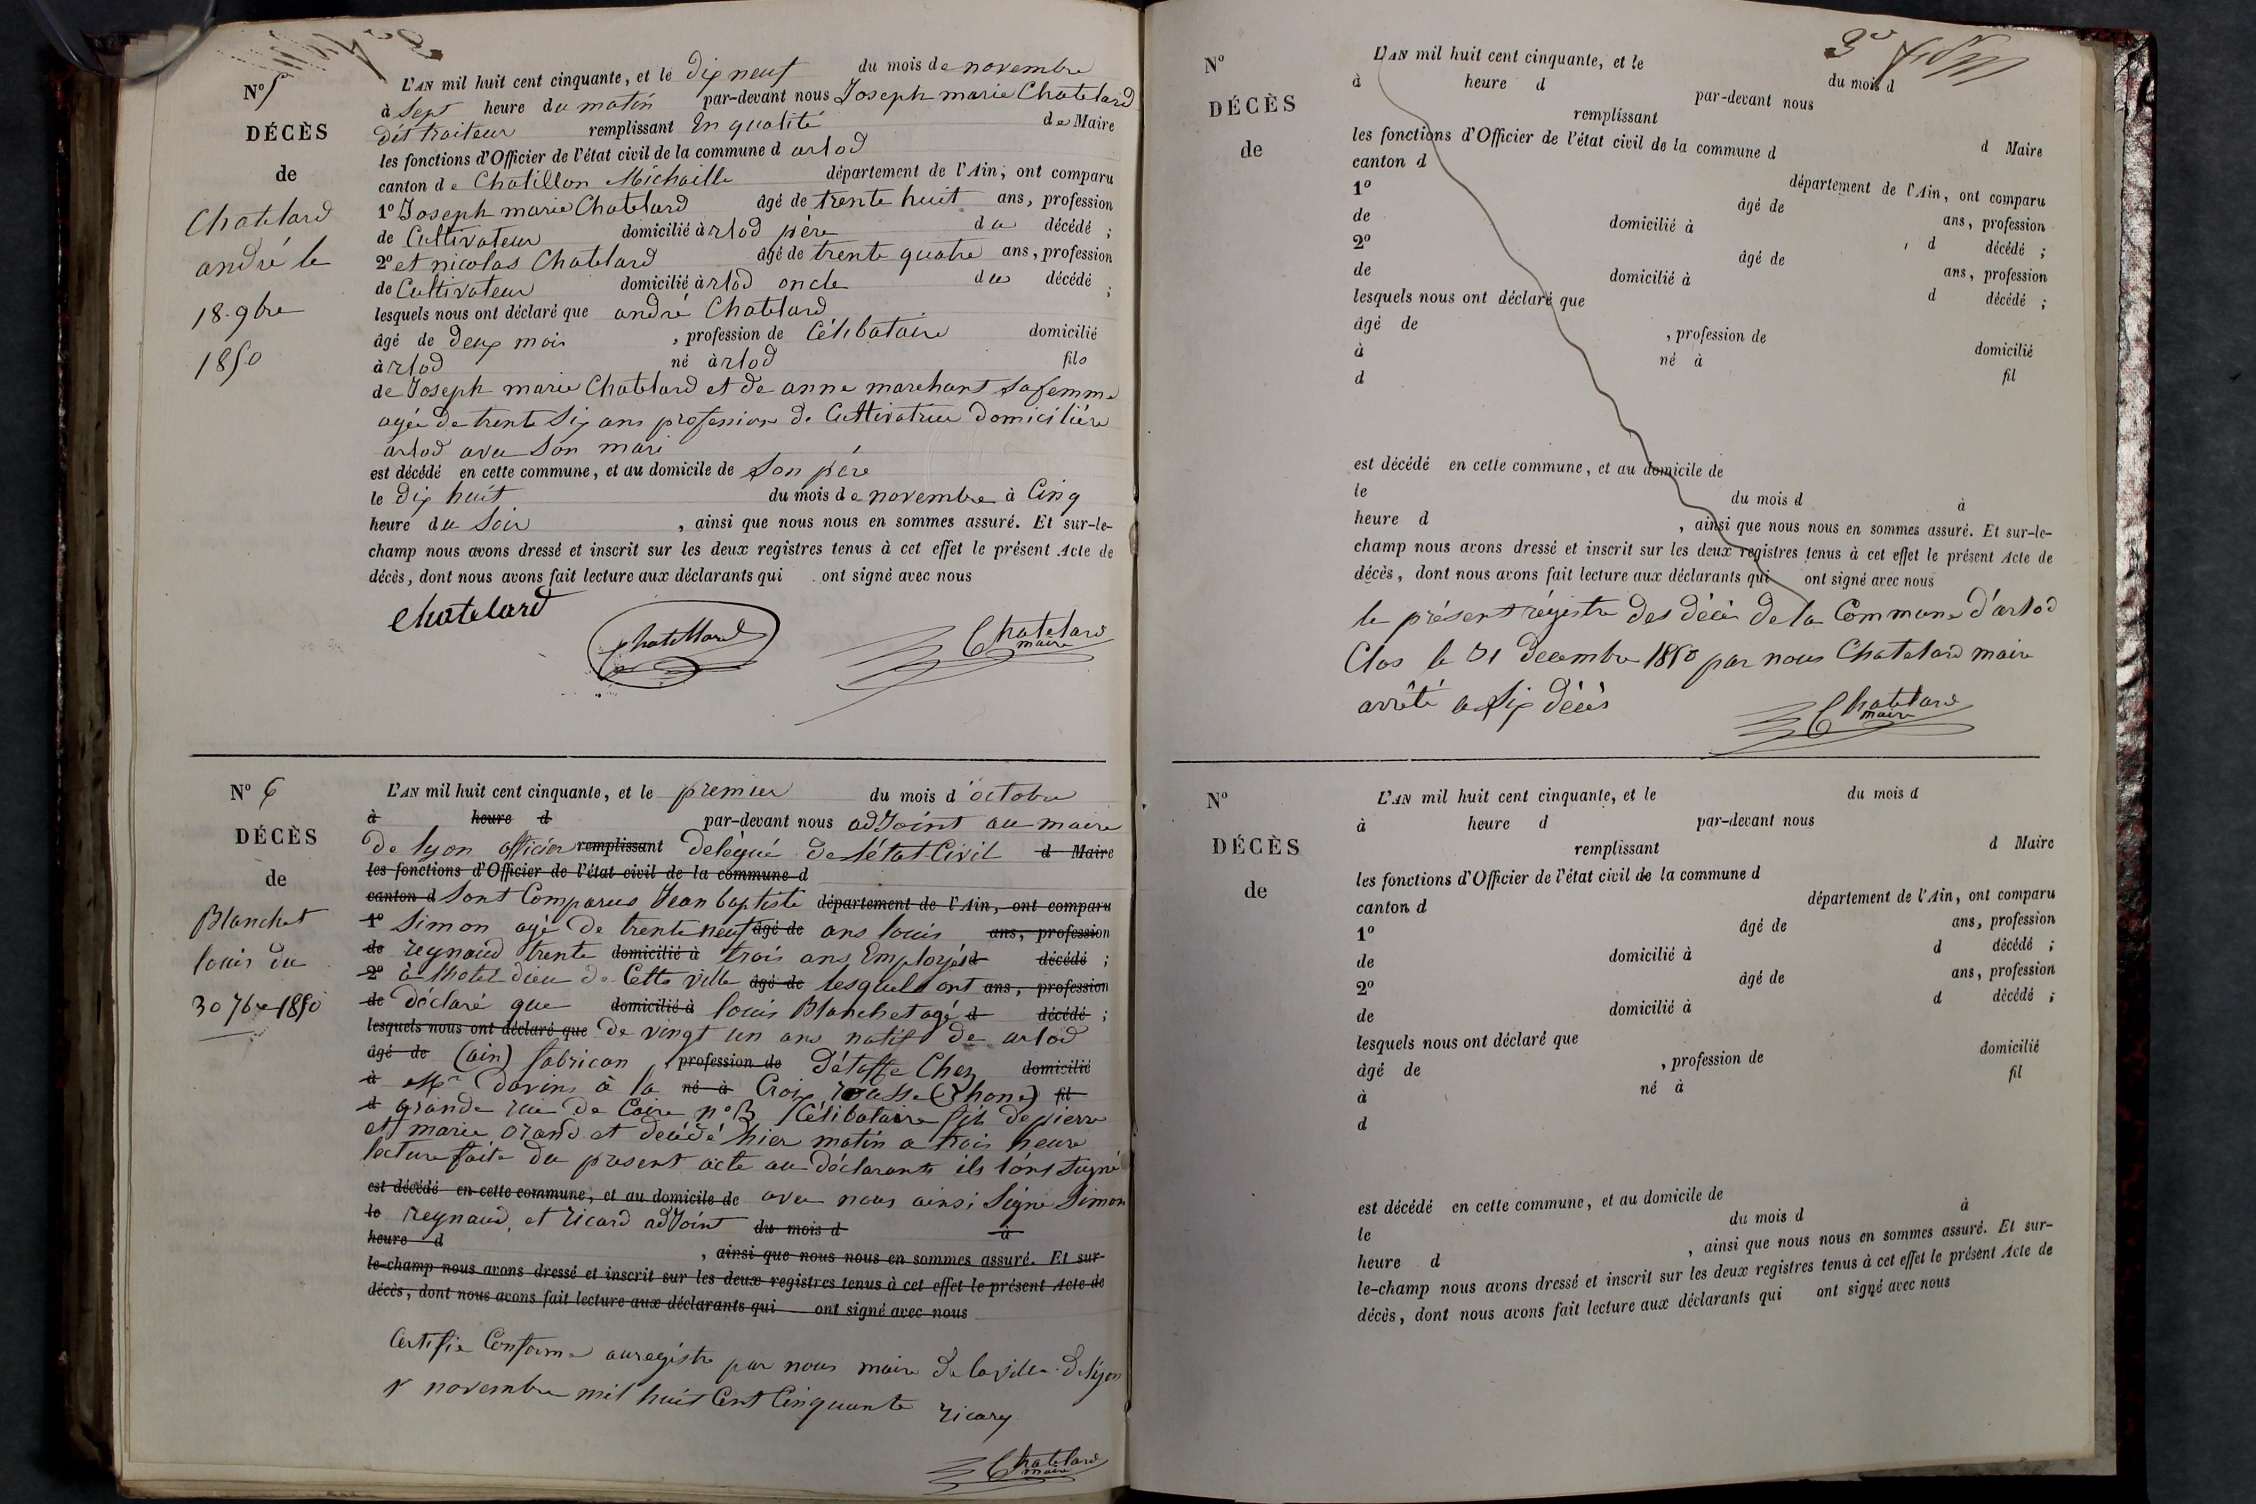 N° 5
DÉCÈS
de
Chatelard
andré le
18. 9bre
1850
L'AN mil huit cent cinquante, et le dix neuf du mois de novembre
à sept heure du matin par-devant nous Joseph marie Chatelard
remplissant En qualité de Maire
les fonctions d'Officier de l'état civil de la commune d arlod
canton de Chatillon Michaille département de l'Ain, ont comparu
1° Joseph marie Chatelard âgé de trente huit ans, profession
de Cultivateur domicilié à rlod père du décédé ;
2° et nicolas Chatelard âgé de trente quatre ans, profession
de Cultivateur domicilié à rlod oncle du décédé ;
lesquels nous ont déclaré que andré Chatelard
âgé de deux mois , profession de Célibataire domicilié
à rlod né à rlod fils
de Joseph marie Chatelard et de anne marchant sa femme
agée de trente six ans profession de Cultivatrice domiciliée
arlod avec son mari
est décédé en cette commune, et au domicile de son père
le dix huit du mois de novembre à Cinq
heure du soir , ainsi que nous nous en sommes assuré. Et sur-le-
champ nous avons dressé et inscrit sur les deux registres tenus à cet effet le présent Acte de
décès, dont nous avons fait lecture aux déclarants qui ont signé avec nous
Chatelard
Chatellard
Chatelard
maire
N° 6
DÉCÈS
de
Blanchet
louis du
30 7bre 1850
L'AN mil huit cent cinquante, et le premier du mois d'octobre
à heure d par-devant nous adJoint au maire
de lyon officier remplissant délégué de l'état Civil d Maire
les fonctions d'Officier de l'état civil de la commune d
canton d sont Comparus Jean baptiste département de l'Ain, ont comparu
1° Simon agé de trente neuf âgé de ans louis ans, profession
de reynaud trente domicilié à trois ans Employés d décédé ;
2° à lhotel dieu de Cette ville âgé de lesquels ont ans, profession
de déclaré que domicilié à louis Blanchet agé d décédé ;
lesquels nous ont déclaré que de vingt un ans natif de arlod
âgé de (ain) fabrican , profession de d'étoffe Chez domicilié
à Mr davins à la né à Croix rousse (Rhone) fil
d grande rue de Coire n° 13 Célibataire fils de pierre
et marie orand et décédé hier matin a trois heure
lecture faite du present acte au déclarants ils l'ont signé
est décédé en cette commune, et au domicile de avec nous ainsi Signé Simon
le reynaud, et ricard adJoint du mois d à
heure d , ainsi que nous nous en sommes assuré. Et sur-
le-champ nous avons dressé et inscrit sur les deux registres tenus à cet effet le présent Acte de
décès, dont nous avons fait lecture aux déclarants qui ont signé avec nous
Certifié Conforme au registre par nous maire de la ville de lyon
novembre mil huit Cent Cinquante
Chatelard
maire
N°
DÉCÈS
de
L'AN mil huit cent cinquante, et le du mois d
à heure d par-devant nous
remplissant d Maire
les fonctions d'Officier de l'état civil de la commune d
canton d département de l'Ain, ont comparu
1° âgé de ans, profession
de domicilié à d décédé ;
2° âgé de ans, profession
de domicilié à d décédé ;
lesquels nous ont déclaré que
âgé de , profession de domicilié
à né à fil
d
est décédé en cette commune, et au domicile de
le du mois d à
heure d , ainsi que nous nous en sommes assuré. Et sur-le-
champ nous avons dressé et inscrit sur les deux registres tenus à cet effet le présent Acte de
décès, dont nous avons fait lecture aux déclarants qui ont signé avec nous
le présent régistre des décès de la Commune d'arlod
Clos le 31 decembre 1850 par nous Chatelard maire
arrêté a six décès
Chatelard
maire
N°
DÉCÈS
de
L'AN mil huit cent cinquante, et le du mois d
à heure d par-devant nous
remplissant d Maire
les fonctions d'Officier de l'état civil de la commune d
canton d département de l'Ain, ont comparu
1° âgé de ans, profession
de domicilié à d décédé ;
2° âgé de ans, profession
de domicilié à d décédé ;
lesquels nous ont déclaré que
âgé de , profession de domicilié
à né à fil
d
est décédé en cette commune, et au domicile de
le du mois d à
heure d , ainsi que nous nous en sommes assuré. Et sur-
le-champ nous avons dressé et inscrit sur les deux registres tenus à cet effet le présent Acte de
décès, dont nous avons fait lecture aux déclarants qui ont signé avec nous